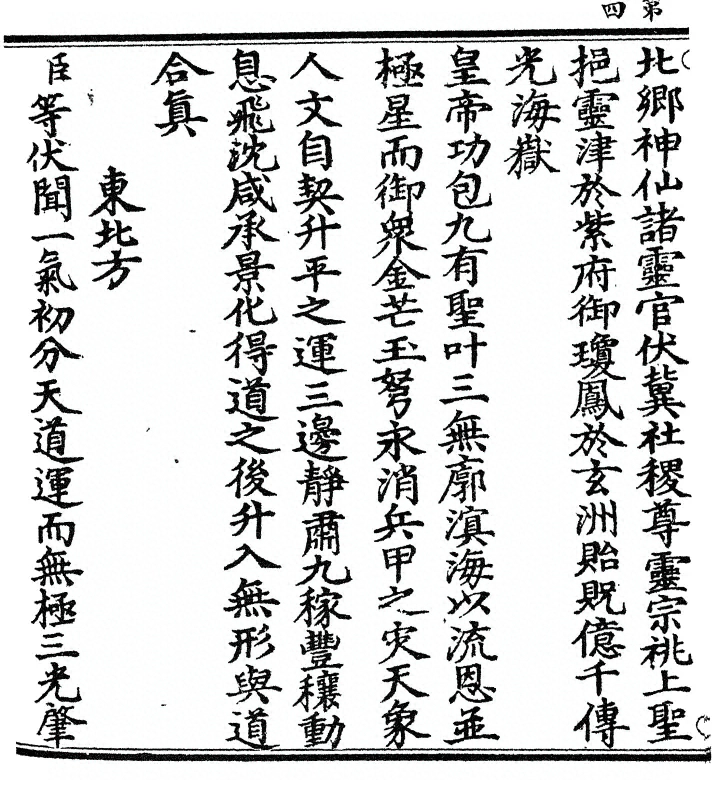 第四
北鄉神仙諸靈官伏冀社稷尊靈宗祧上聖
挹靈津於紫府御瓊鳳於玄洲貽貺億千傳
光海嶽
皇帝功包九有聖叶三無廓溟海以流恩並
極星而御衆金芒玉弩永消兵甲之灾天象
人文自契升平之運三邊靜肅九稼豐穰動
息飛沈咸承景化得道之後升入無形與道
合眞
東北方
臣等伏聞一氣初分天道運而無極三光肇